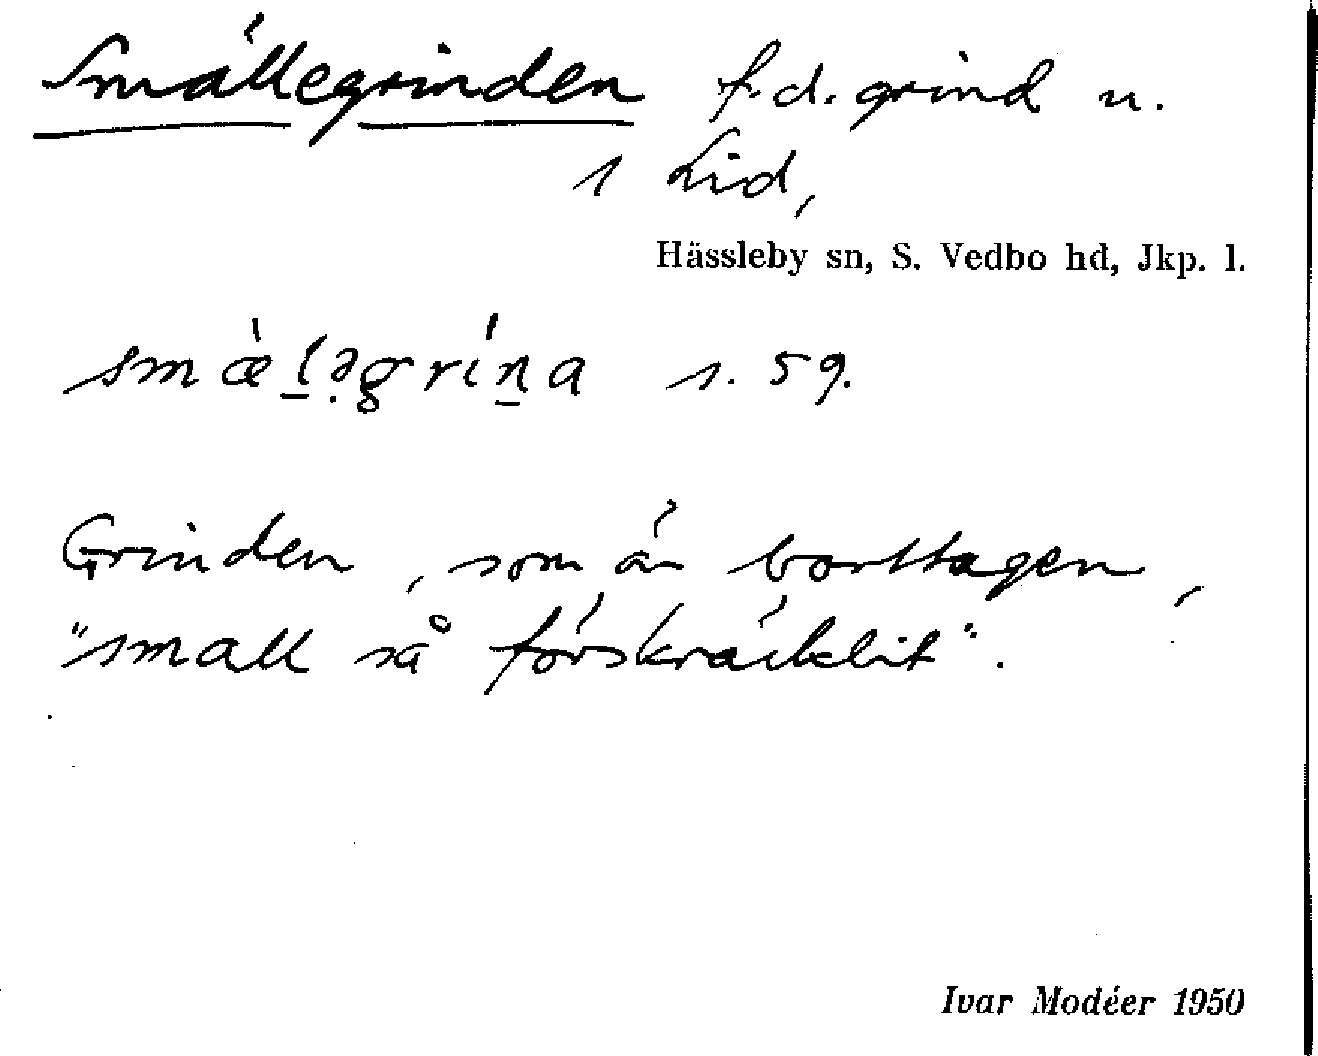 Smällegrinden f.d. grind u.
1 Lid,
Hässleby sn, S. Vedbo hd, Jkp. l.
smæ̀l̲ə̣grín̲a s. 59.
Grinden, som är borttagen,
"small så förskräcklit".
Ivar Modéer 1950